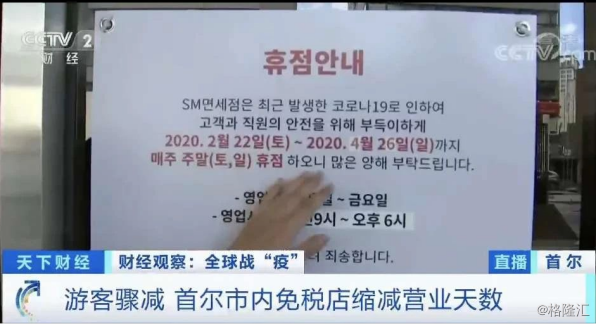 CCTV 2
财经
CCTV
.com
휴점안내
SM면세점은 최근 발생한 코로나19로 인하여
고객과 직원의 안전을 위해 부득이하게
2020. 2월 22일(토) ~ 2020. 4월 26일(일)까지
매주 주말(토,일) 휴점 하오니 많은 양해 부탁드립니다.
- 영업 ~ 금요일
- 영업 9시 ~ 오후 6시
죄송합니다.
天下财经
财经观察：全球战“疫”
直播
首尔
游客骤减 首尔市内免税店缩减营业天数
@格隆汇